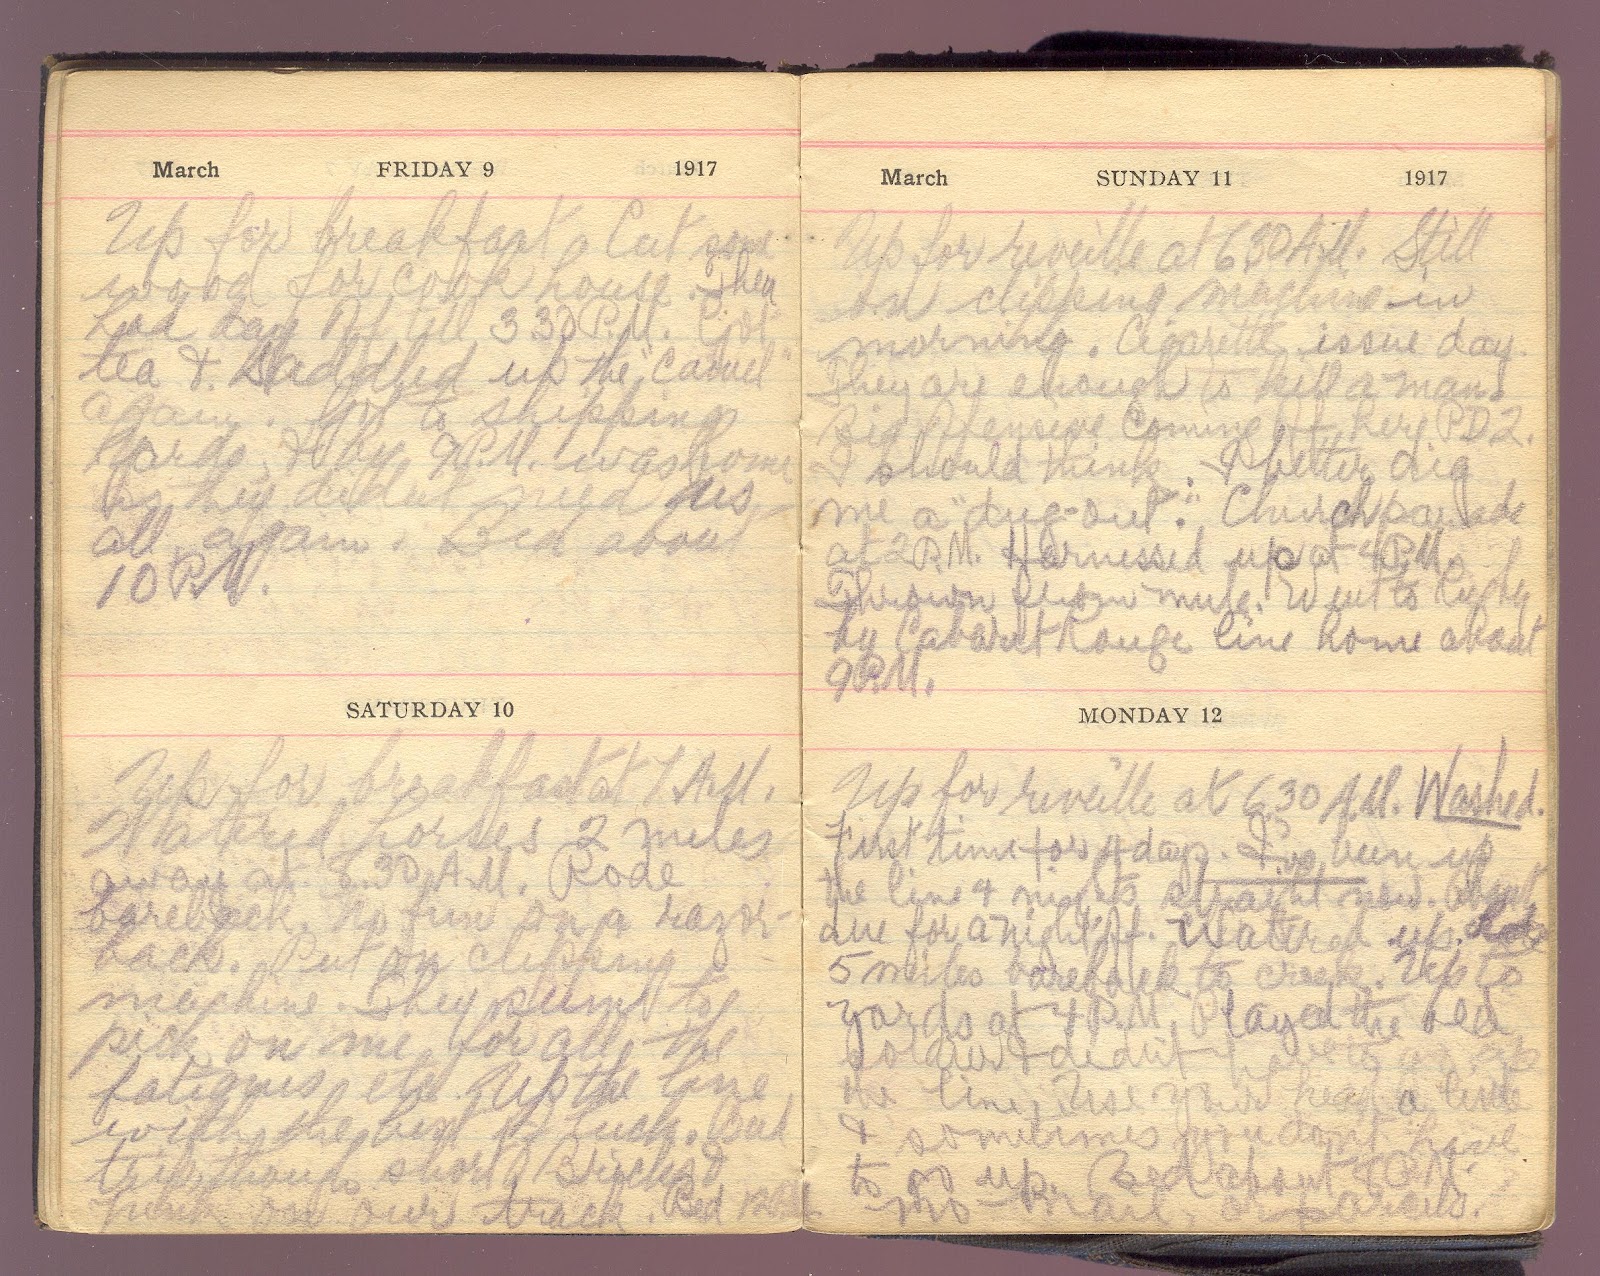 March FRIDAY 9 1917
Up for breakfast. Cut some
wood for cook house. Then
had day off till 3 30 P.M. Got
tea & saddled up the "Camel"
again. Got to shipping
yards, & by 9 P.M. was home
as they didn't need us
all again. Bed about
10 P.M.
SATURDAY 10
Up for breakfast at 7 A.M.
Watered horses 2 miles
away at 8.30 A.M. Rode
bareback. No fun on a razor-
back. Put on clipping
machine. They seem to
pick on me for all the
fatigues, etc. Up the line
with the best of luck. Bad
trip though short. Bricks &
junk on our track. Bed
March SUNDAY 11 1917
Up for reveille at 6 30 A.M. Still
on clipping machine in
morning. Cigarette issue day.
They are enough to kill a man.
Big Offensive Coming Off
I should think. I better dig
me a "dug-out". Church parade
at 2 P.M. Harnessed up at 4 P.M.
Thrown from mule. Went to
by Cabaret Rouge line home about
9 P.M.
MONDAY 12
Up for reveille at 6.30 A.M. Washed.
First time for 4 days. I've been up
the line 4 nights straight now. About
due for a night off. Watered up. Rode
5 miles bareback to creek. Up to
yards at 4 P.M. Played the old
soldier & didn't have to go up
the line. Use your head a little
& sometimes you don't have
to go up. Bed about 10 P.M.
No mail, or parcels.